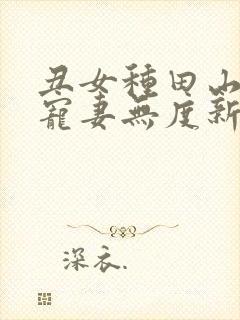 丑女種田山
寵妻無度新
深衣.